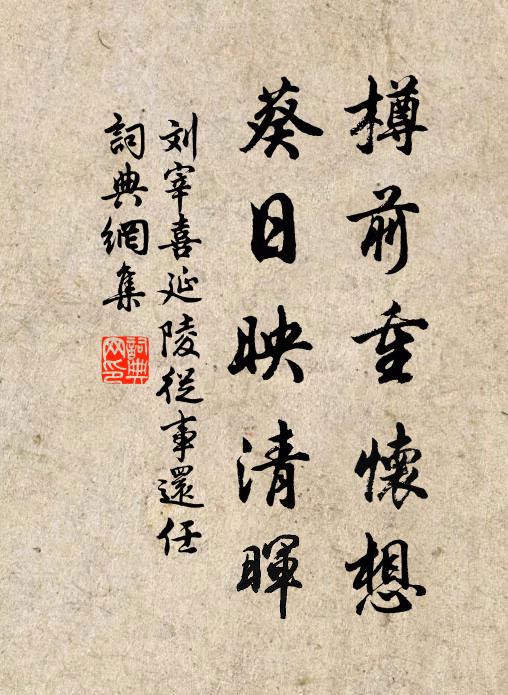 樽前重懷想
葵日映清暉
刘宰喜延陵從事還任
詞典網集
詞典網印